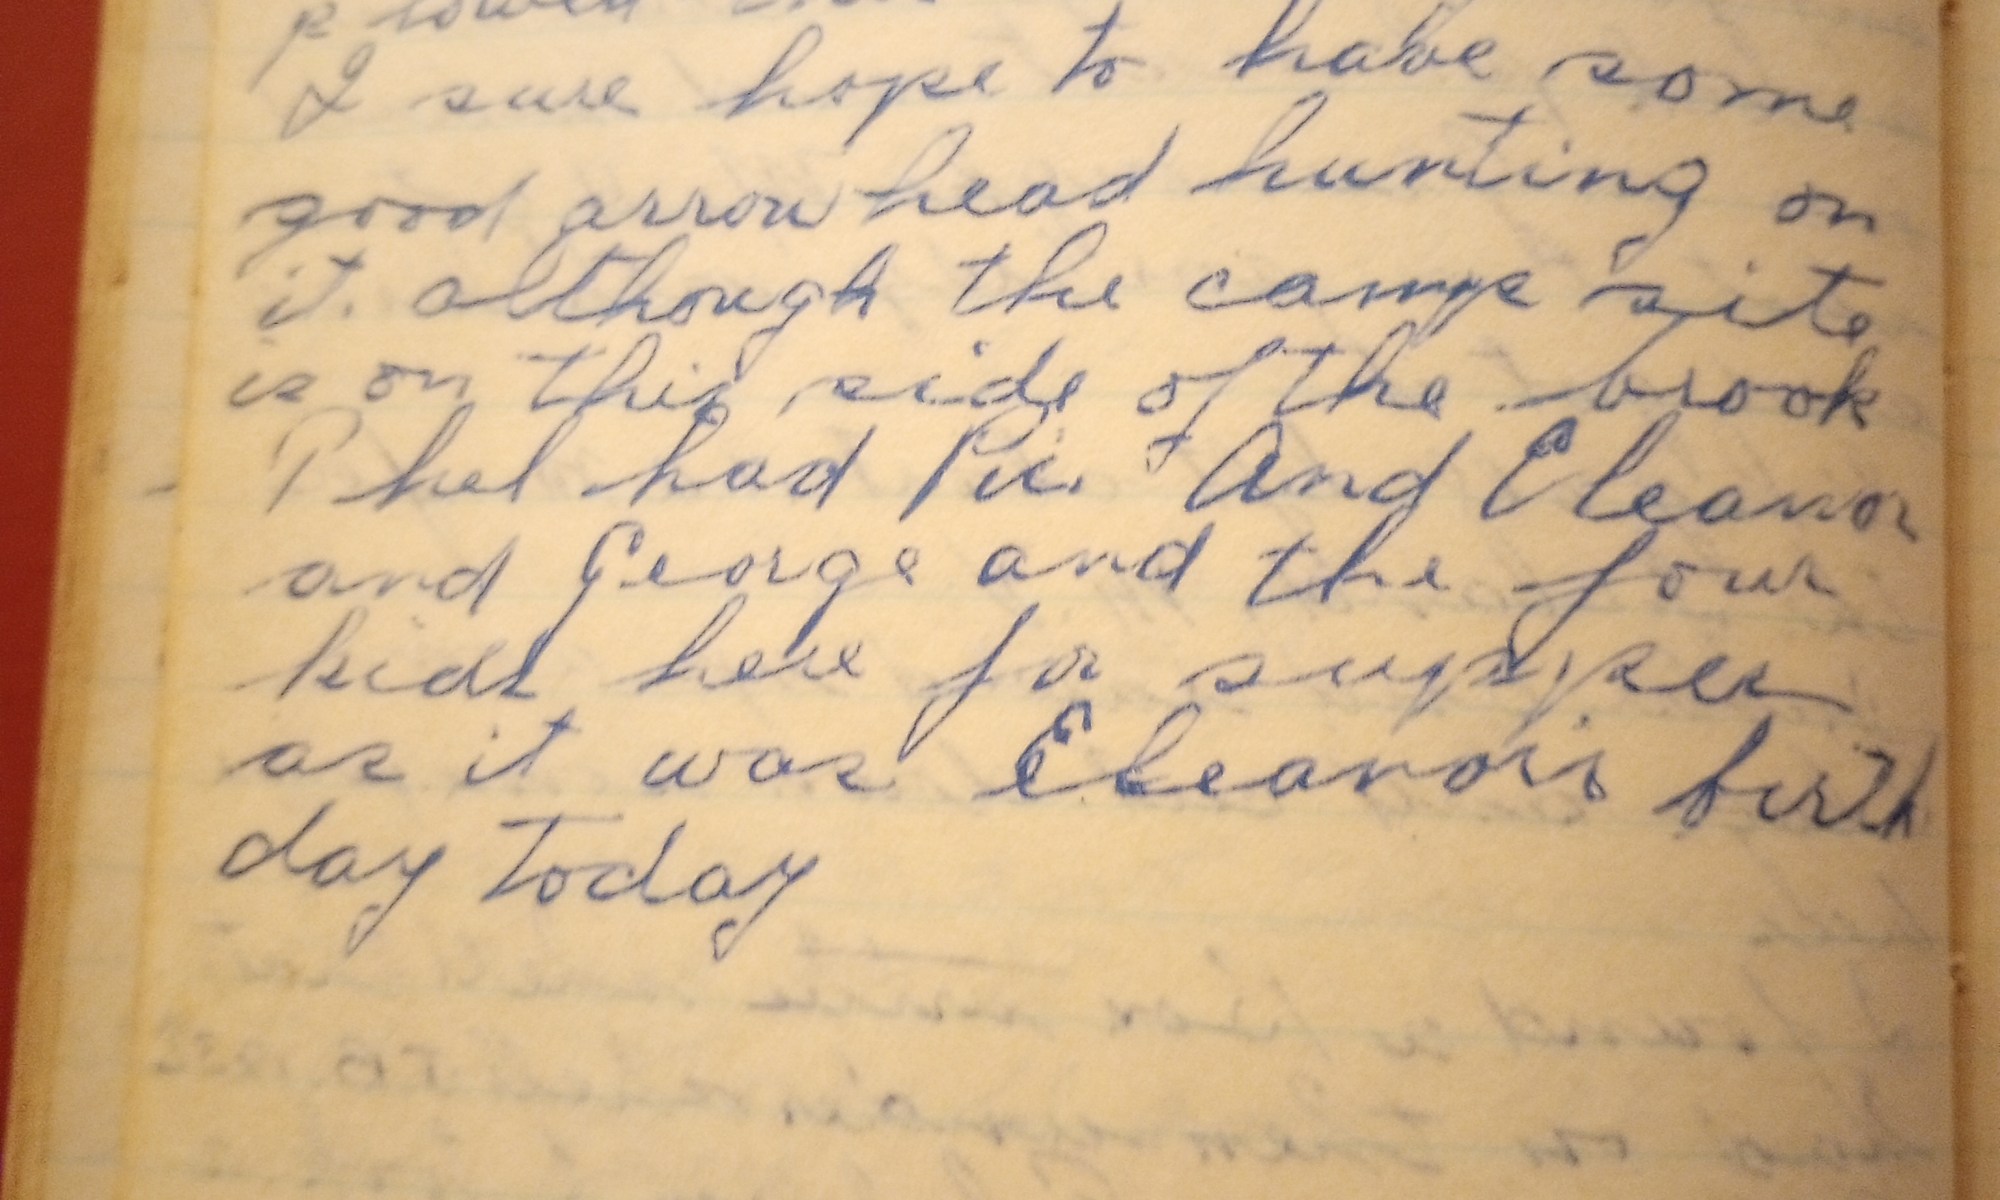 plowed
I sure hope to have some
good arrow head hunting on
it. although the camp site
is on this side of the brook
Phel had Pic. And Eleanor
and George and the four
kids here for supper
as it was Eleanor's birth
day today